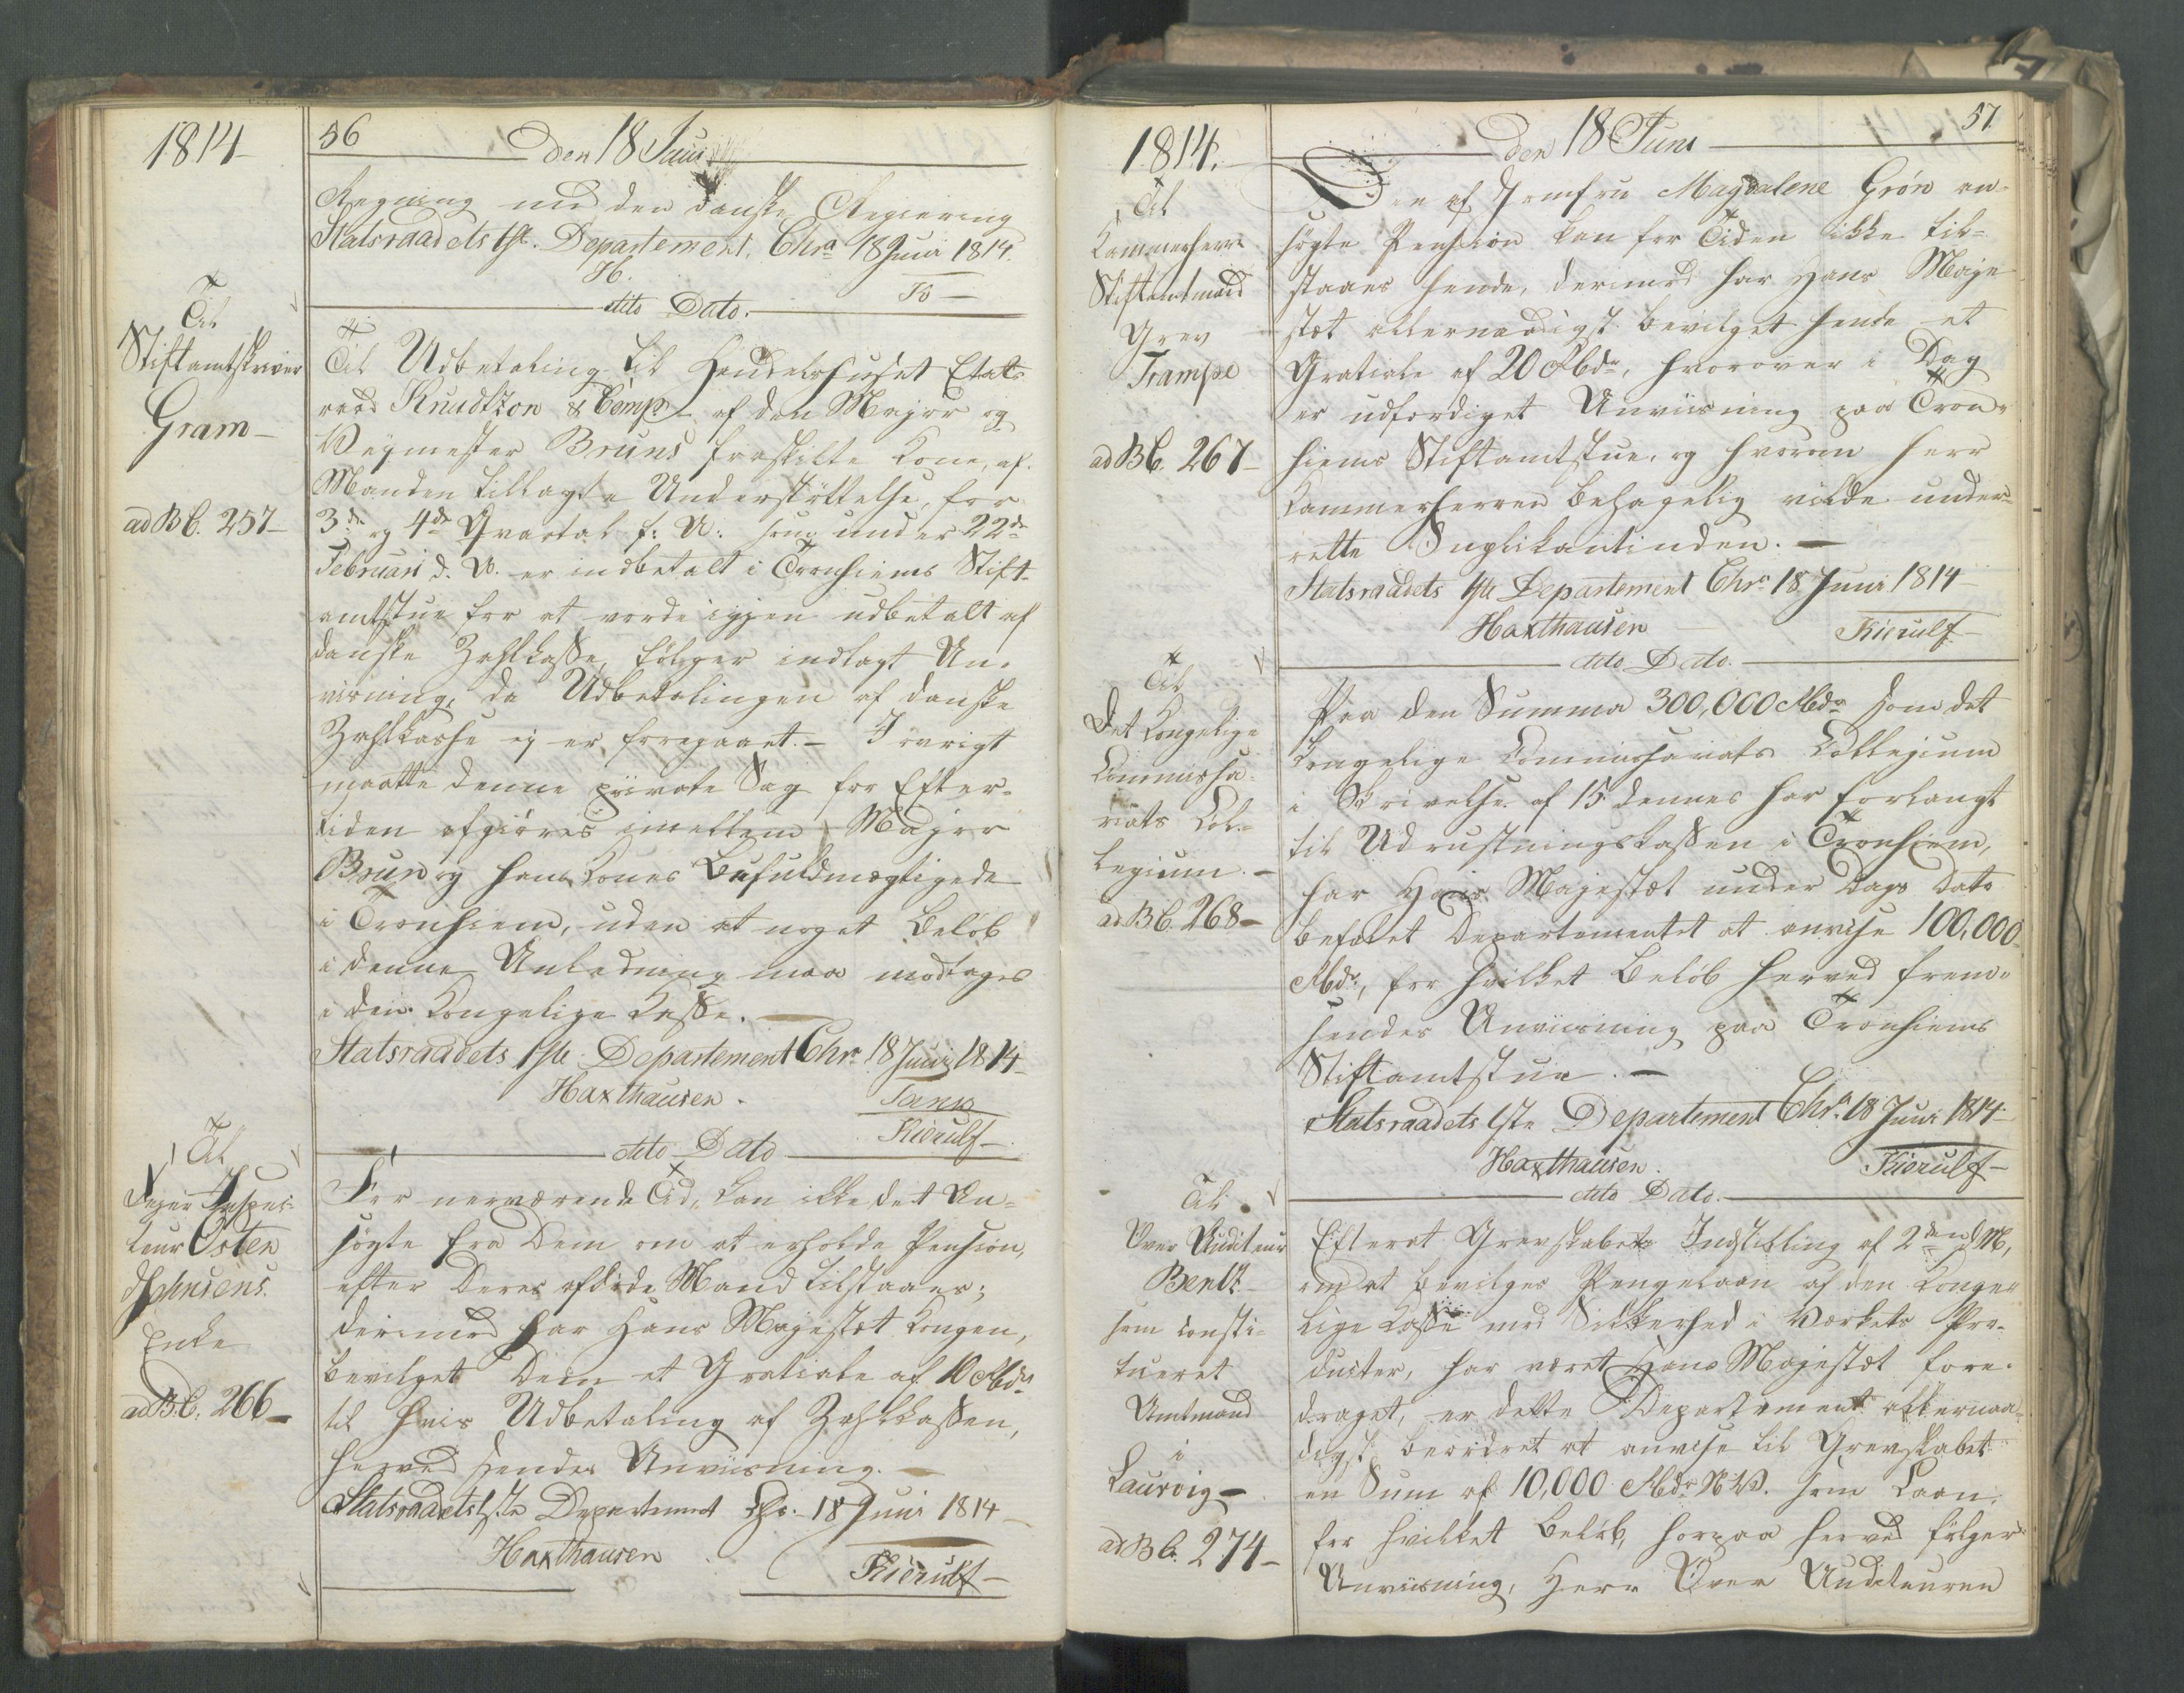 1814
56
den 18 Juni
Regning med den danske Regiering
Statsraadets 1ste Departement. Chra 18 Juni 1814.
H.
To
dito Dato.
Til
Stiftamtskriver
Gram
ad B b. 257
Til Udbetaling til Handelshuset Etats-
raad Knudtzon & Comp. af den Major og
Veymester Bruns fraskilte Kone, af
Manden tillagte Understøttelse, for
3de og 4de Qvartal f: A: som under 22de
Februari d. A. er indbetalt i Tronhiems Stift-
amtstue for at vorde igjen udbetalt af
danske Zahlkasse, følger indlagt An-
visning, da Udbetalingen af danske
Zahlkasse ej er foregaaet. - I øvrigt
maatte denne private Sag for Efter-
tiden afgiøres imellem Major
Brun og hans Kones Befuldmægtigede
i Tronhiem, uden at noget Beløb
i denne Anledning maa modtages
i den Kongelige Kasse.
Statsraadets 1ste Departement Chra 18 Juni 1814
Haxthausen.
Tank
Kierulf
dito Dato
Til
Vejer Inspec-
teur Osten
Enke
ad B. b. 266
For nerværende Tid, kan ikke det An-
søgte fra Dem om at erholde Pension,
efter Deres afdøde Mand tilstaaes;
derimod har Hans Majestæt Kongen,
bevilget Dem et Gratiale af 10 Rbdr
til hvis Udbetaling af Zahlkassen,
herved sendes Anviisning.
Statsraadets 1ste Departement Chr. 18 Juni 1814
Haxthausen
Kierulf
1814.
57.
den 18 Juni
Til
Kammerherre
Stiftamtmand
Grev
Trampe
ad B b. 267
Den af Jomfru Magdalene Grøn an-
søgte Pension kan for Tiden ikke til-
staaes hende, derimod har Hans Maje-
stæt allernaadigst bevilget hende et
Gratiale af 20 Rbdr, hvorover i Dag
er udfærdiget Anviisning paa Tron-
hiems Stiftamtstue, og hvorom Herr
Kammerherren behagelig vilde under-
rette Suplikantinden.
Statsraadets 1ste Departement Chra 18 Juni 1814
Haxthausen
Kierulf
dito Dato.
Til
Det Kongelige
Commissa-
riats Col-
legium.
ad B b. 268
Paa den Summa 300,000 Rbdr som det
Kongelige Commissariats Collegium
i Skrivelse af 15 dennes har forlangt
til Udrustningskassen i Tronhiem,
har Hans Majestæt under Dags Dato
befalet Departementet at anvise 100,000
Rbdr, for hvilket Beløb herved frem-
sendes Anviisning paa Tronhiems
Stiftamtstue.
Statsraadets 1ste Departement Chra 18 Juni 1814
Haxthausen.
Kierulf
dito Dato.
Til
Over Auditeur
Bentz
som consti-
tueret
Amtmand
i
Laurvig
ad B b. 274
Efterat Grevskabets Indstilling af 2den d. M.,
om at bevilges Pengelaan af den Konge-
lige Kasse mod Sikkerhed i Værkets Pro-
ducter, har været Hans Majestæt fore-
draget, er dette Departement allernaa-
digst beordret at anvise til Grevskabet
en Sum af 10,000 Rbdr N. V. som Laan,
for hvilket Beløb, hvorpaa herved følger
Anviisning, Herr Over Auditeuren